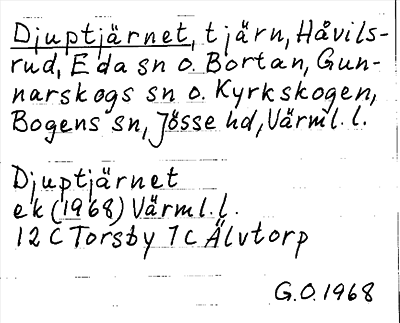 Djuptjärnet, tjärn, Håvils-
rud, Eda sn o. Bortan, Gun-
narskogs sn o. Kyrkskogen,
Bogens sn, Jösse hd, Värml. l.
Djuptjärnet
ek (1968) Värml. l.
12 C Torsby 7c Älvtorp
G.O. 1968